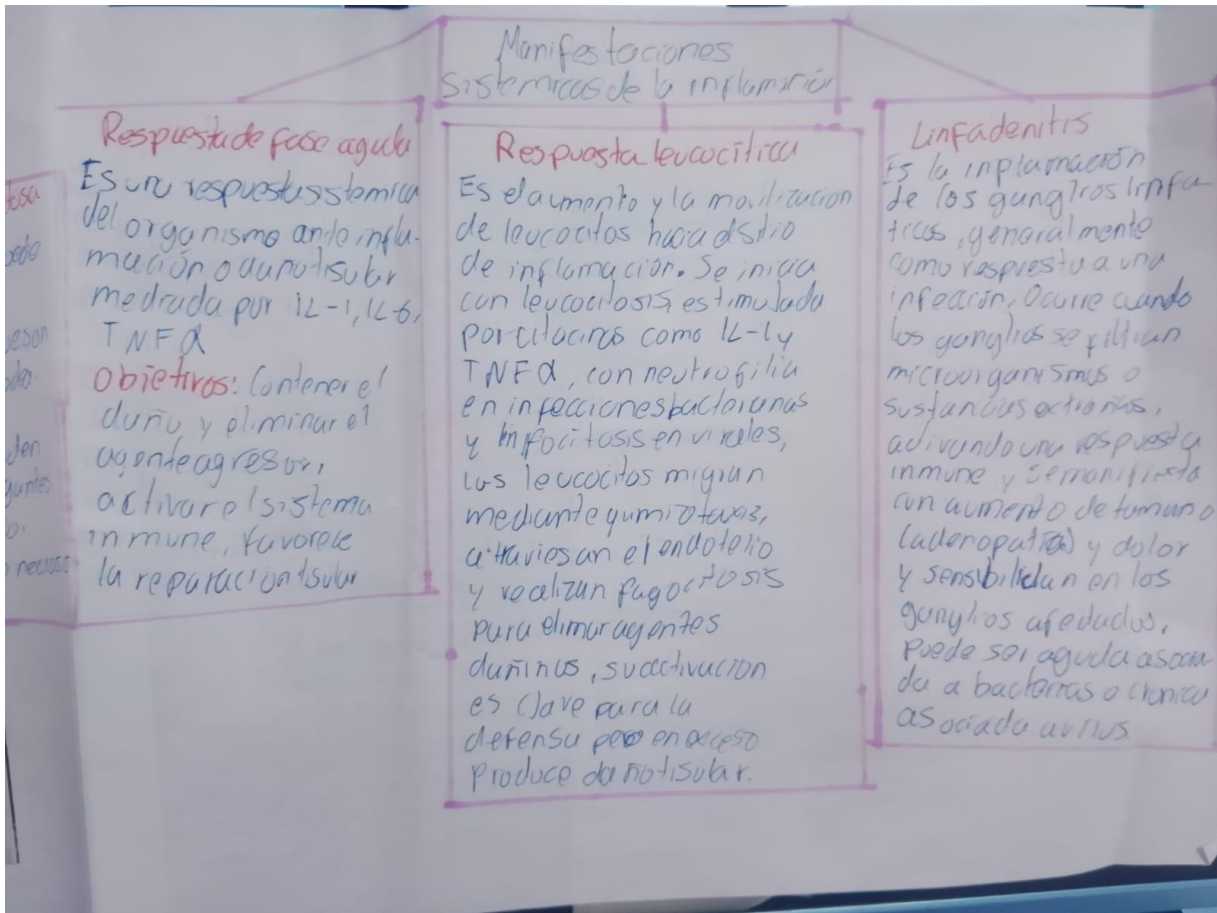 Manifestaciones
sistemicas de la inflamación
Respuesta de fase aguda
Es una respuesta sistemica
del organismo ante infla-
mación o daño tisular
mediada por IL-1, IL-6,
TNFα
Objetivos: Contener el
daño y eliminar el
agente agresor,
activar el sistema
inmune, favorece
la reparación tisular
Respuesta leucocítica
Es el aumento y la movilizacion
de leucocitos hacia el sitio
de inflamación. Se inicia
con leucocitosis, estimulada
por citocinas como IL-1 y
TNFα, con neutrofilia
en infecciones bacterianas
y linfocitosis en virales,
los leucocitos migran
mediante quimiotaxis,
atraviesan el endotelio
y realizan fagocitosis
para elimar agentes
dañinos, su activacion
es clave para la
defensa pero en exceso
produce daño tisular.
Linfadenitis
Es la inplamación
de los ganglios linfa
ticos, generalmente
como respuesta a una
infección, Ocurre cuando
los ganglios se filtran
microorganismos o
sustancias extrañas,
activando una respuesta
inmune y se manifiesta
con aumento de tamaño
(adenopatia) y dolor
y sensibilidan en los
ganglios afectados,
Puede ser aguda asocia-
da a bacterias o cronica
asociada a virus